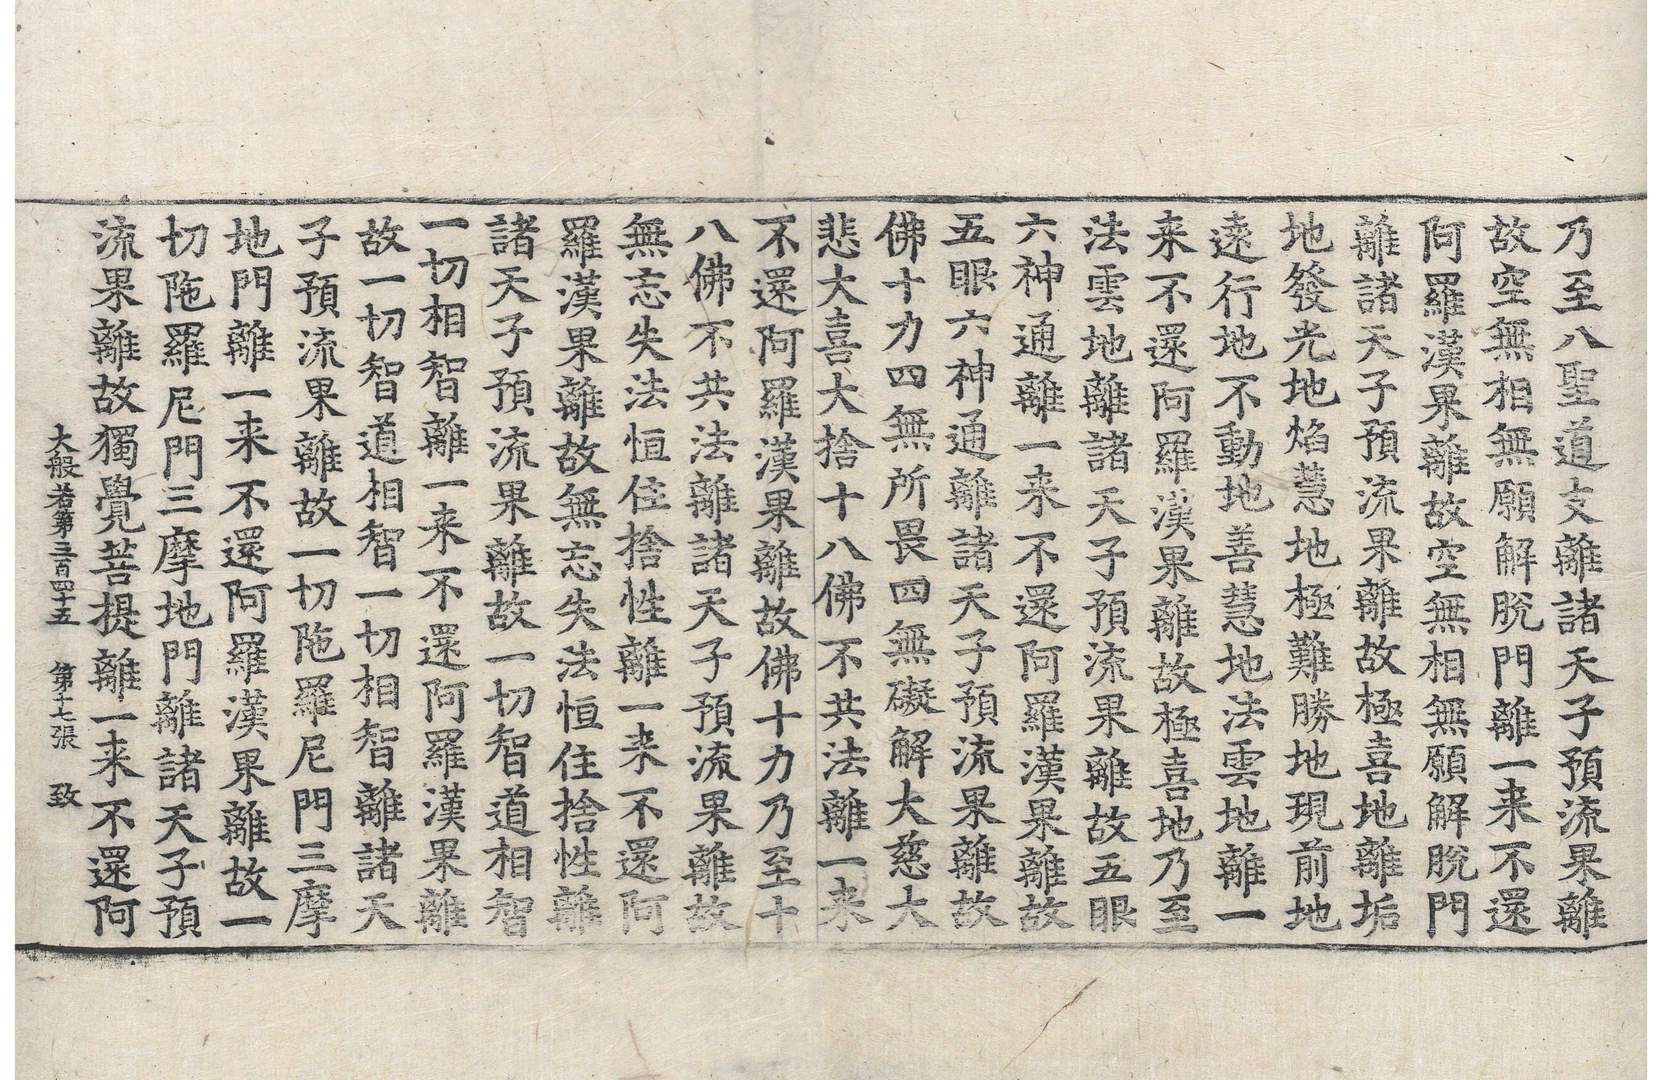 乃至八聖道支離諸天子預流果離
故空無相無願解脫門離一来不還
阿羅漢果離故空無相無願解脫門
離諸天子預流果離故極喜地離垢
地發光地焰慧地極難勝地現前地
遠行地不動地善慧地法雲地離一
来不還阿羅漢果離故極喜地乃至
法雲地離諸天子預流果離故五眼
六神通離一来不還阿羅漢果離故
五眼六神通離諸天子預流果離故
佛十力四無所畏四無礙解大慈大
悲大喜大捨十八佛不共法離一来
不還阿羅漢果離故佛十力乃至十
八佛不共法離諸天子預流果離故
無忘失法恒住捨性離一来不還阿
羅漢果離故無忘失法恒住捨性離
諸天子預流果離故一切智道相智
一切相智離一来不還阿羅漢果離
故一切智道相智一切相智離諸天
子預流果離故一切陁羅尼門三摩
地門離一来不還阿羅漢果離故一
切陁羅尼門三摩地門離諸天子預
流果離故獨覺菩提離一来不還阿
大般若第三百四十五 第十七張 致